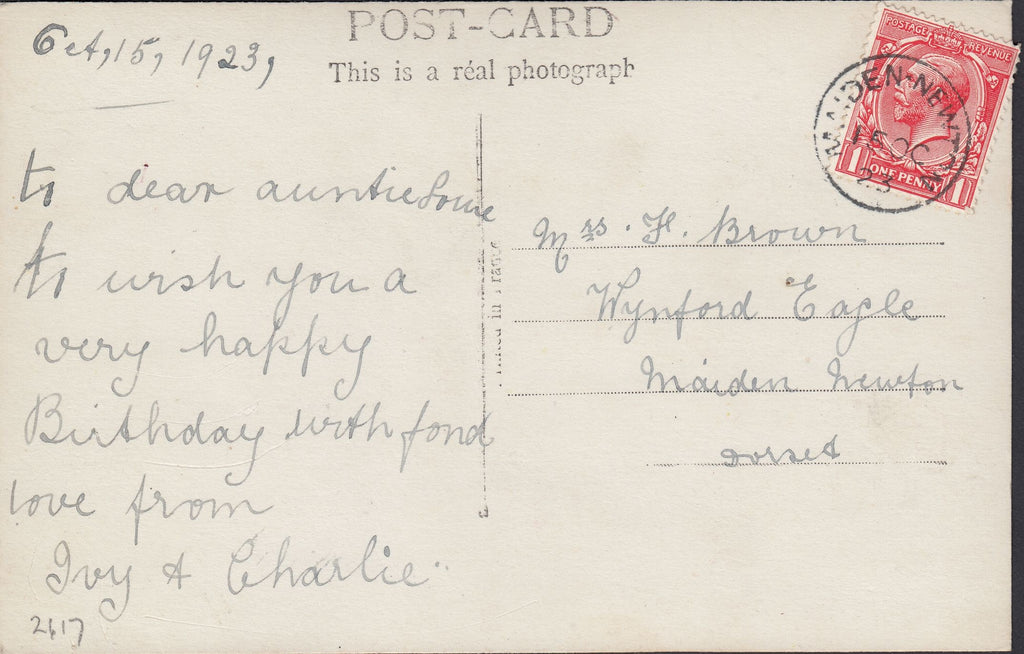 POST-CARD
This is a réal photograph
Oct, 15, 1923,
to dear auntie
to wish you a
very happy
Birthday with fond
love from
Ivy & Charlie
2617
Printed in France
POSTAGE REVENUE
ONE PENNY
1 1
MAIDEN-NEWTON
15 OC
23
Mrs. H. Brown
Wynford Eagle
Maiden Newton
Dorset